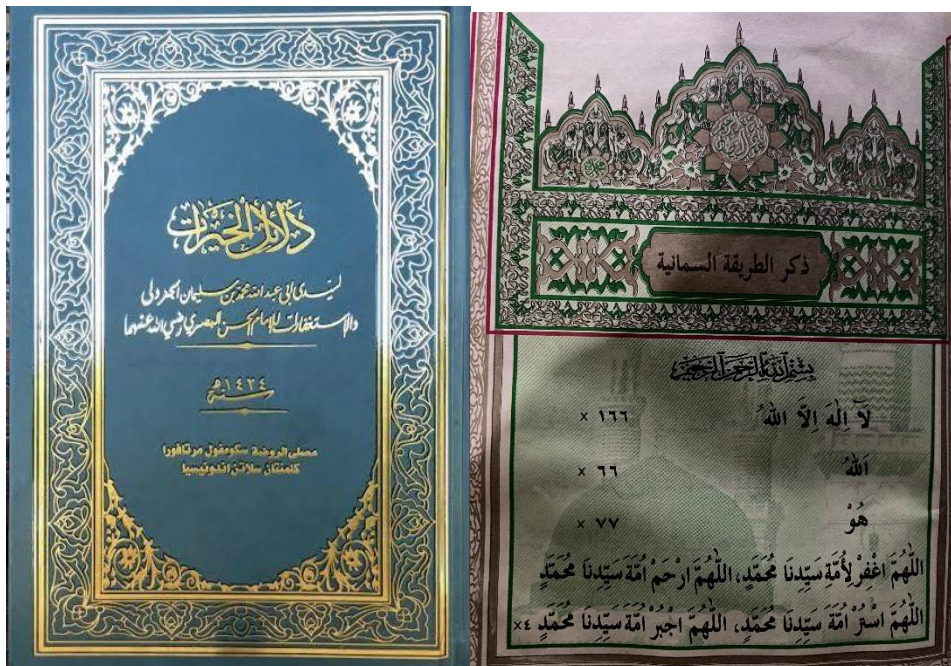 دلائل الخيرات
لسيدي أبي عبد الله محمد بن سليمان الجزولي
والاستغفارات للإمام الحسن البصري رضي الله عنهما
سنة ١٤٣٤ھ
مصلى الروضة سكومفول مرتافورا
كلمنتان سلاتن اندونيسيا
ذكر الطريقة السمانية
بسم الله الرحمن الرحيم
لَآ اِلٰهَ اِلَّا اللهُ ١٦٦ ×
اَللهُ ٦٦ ×
هُوْ ٧٧ ×
اللّٰهُمَّ اغْفِرْ لِأُمَّةِ سَيِّدِنَا مُحَمَّدٍ، اللّٰهُمَّ ارْحَمْ اُمَّةَ سَيِّدِنَا مُحَمَّدٍ
اللّٰهُمَّ اسْتُرْ اُمَّةَ سَيِّدِنَا مُحَمَّدٍ، اللّٰهُمَّ اجْبُرْ اُمَّةَ سَيِّدِنَا مُحَمَّدٍ ٤×